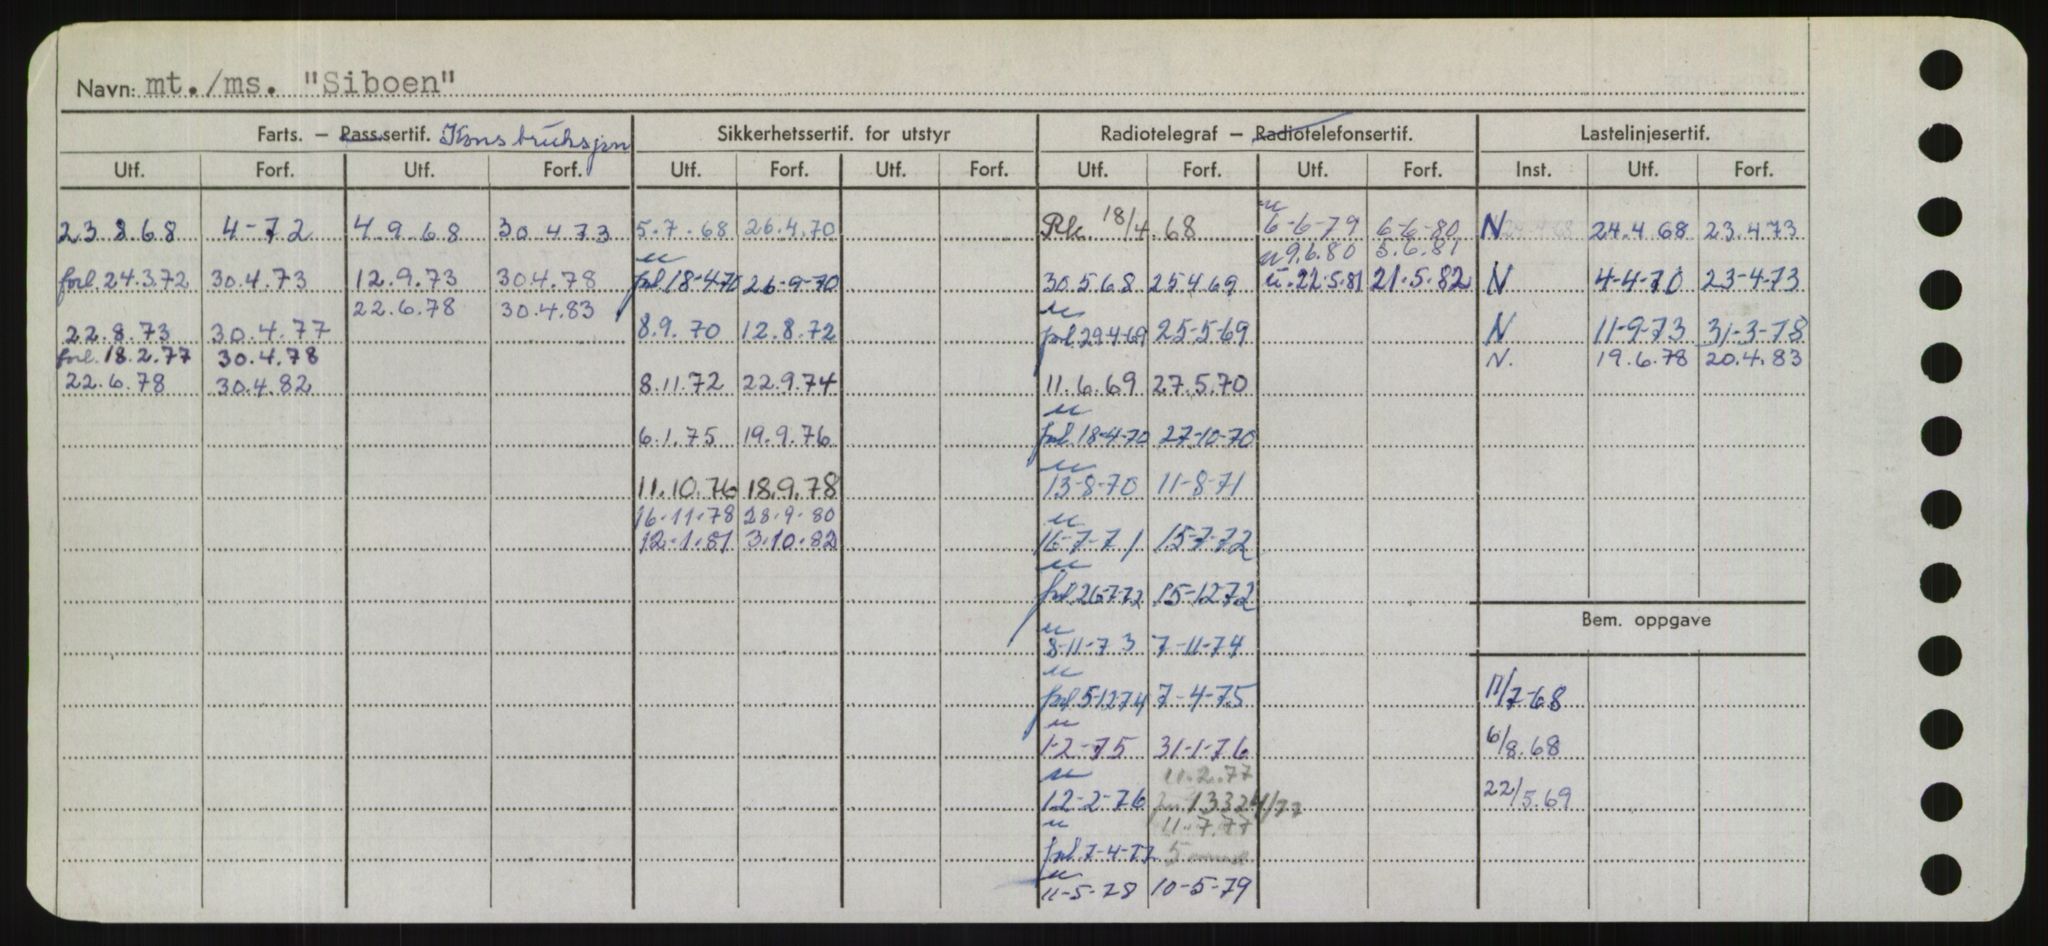 Navn: mt./ms. "Siboen"
Farts. – Passsertif. Konstruksjon Sikkerhetssertif. for utstyr Radiotelegraf – Radiotelefonsertif. Lastelinjesertif.
Utf. Forf. Utf. Forf. Utf. Forf. Utf. Forf. Utf. Forf. Utf. Forf. Inst. Utf. Forf.
23.8.68 4-72 4.9.68 30.4.73 5.7.68 26.4.70 Rk 18/4.68 u 6-6-79 6-6-80 N 24.4.68 23.4.73
u 9.6.80 5.6.81
forl. 24.3.72 30.4.73 12.9.73 30.4.78 u forl. 18-4-70 26-9-70 30.5.68 25.4.69 u. 22.5.81 21.5.82 N 4-4-70 23-4-73
22.6.78 30.4.83
22.8.73 30.4.77 8.9.70 12.8.72 u forl. 29.4-69 25-5-69 N 11-9-73 31-3-78
forl. 18.2.77 30.4.78 N. 19.6.78 20.4.83
22.6.78 30.4.82 8.11.72 22.9.74 11.6.69 27.5.70
6.1.75 19.9.76 u forl. 18-4-70 27-10-70
11.10.76 18.9.78 u 13-8-70 11-8-71
16.11.78 28.9.80
12.1.81 3.10.82 u 16-7-71 15-7-72
u forl. 26-7-72 15-12-72
Bem. oppgave
u 8-11-73 7-11-74
u forl. 5-12-74 7-4-75 11/7-68
u 1-2-75 31-1-76 6/8.68
11.2.77
u 12-2-76 22/5.69
11.7.77
u forl. 7-4-77 5
u 11-5-78 10-5-79